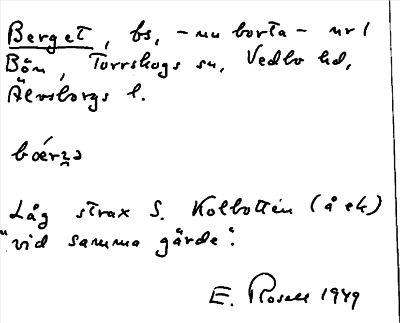 Berget, bs, - nu borta - nr 1
Bön, Torrskogs sn, Vedbo hd,
Älvsborgs l.
bǿrʒə
Låg strax S. Kolbotten (å ek)
"vid samma gärde".
E. Rosell 1949